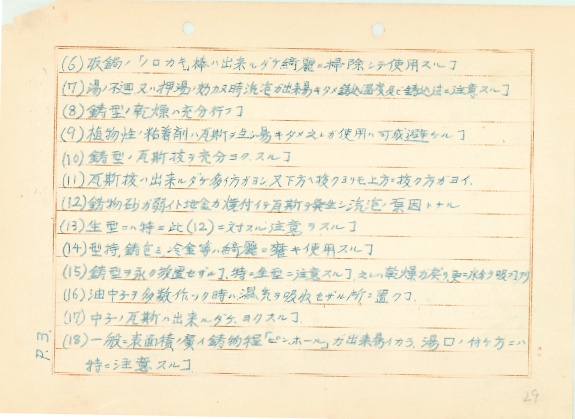 (6) 取鍋ノ「ノロカキ」棒ハ出来ルダケ綺麗ニ掃除シテ使用スルヿ
(7) 湯ノ不廻又ハ押湯ノ効カヌ時気泡ガ出来易キタメ鋳込温度及ビ鋳込法ニ注意スルヿ
(8) 鋳型ノ乾燥ハ充分行フヿ
(9) 植物性ノ粘着剤ハ瓦斯ヲ生ジ易キタメ之レガ使用ハ可成避ケルヿ
(10) 鋳型ノ瓦斯抜ヲ充分ヨクスルヿ
(11) 瓦斯抜ハ出来ルダケ多イ方ガヨシ又下方ヘ抜クヨリモ上方ニ抜ク方ガヨイ.
(12) 鋳物砂ガ弱イト地金ガ焼付イテ瓦斯ヲ発生シ気泡ノ原因トナル
(13) 生型ニハ特ニ此(12)ニ対スル注意ヲスルヿ
(14) 型持、鋳包ミ、冷金等ハ綺麗ニ磨キ使用スルヿ
(15) 鋳型ヲ永ク放置セザルヿ、特ニ生型ニ注意スルヿ 之レハ乾燥
(16) 油中子ヲ多数作ツタ時ハ湿気ヲ吸収セザル所ニ置クヿ.
(17) 中子ノ瓦斯ハ出来ルダケ、ヨクスルヿ.
(18) 一般ニ表面積ノ廣イ鋳物程「ピンホール」ガ出来易イカラ、湯口ノ付ケ方ニハ
特ニ注意スルヿ
P.3.
29